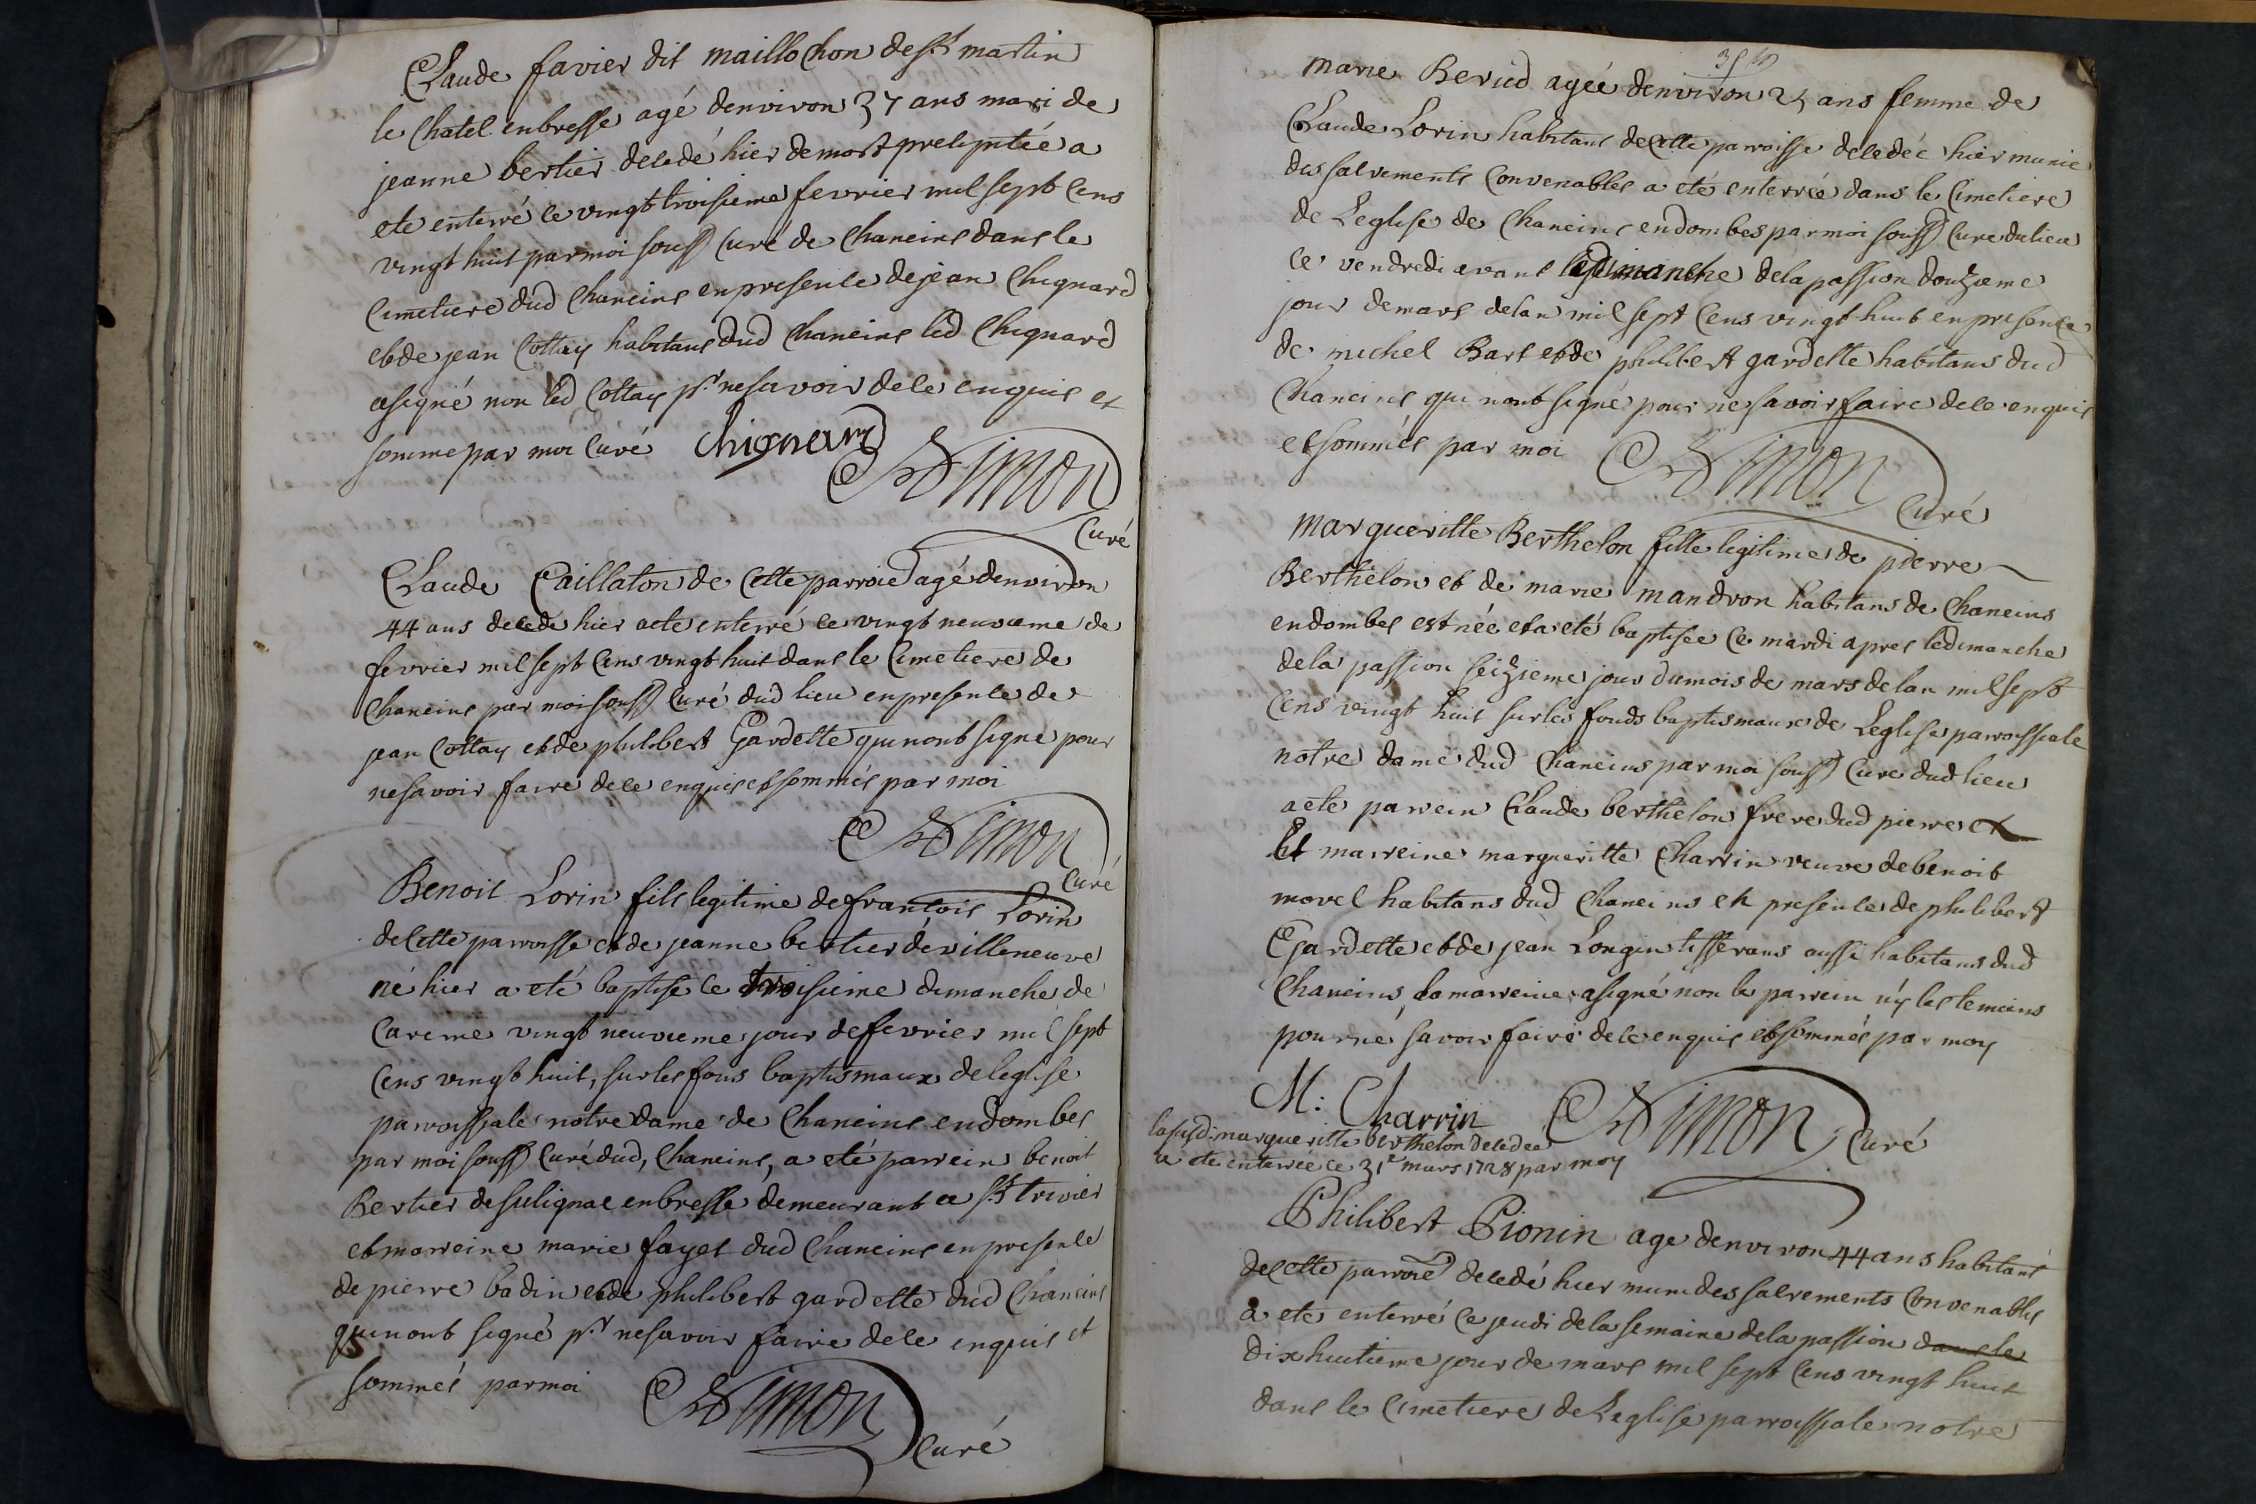 Claude favier dit maillochon de st martin
le Chatel en bresse agé denviron 37 ans mari de
jeanne bertier decedé hier de mort precipitée a
ete enterré ce vingt troisieme fevrier mil sept cens
vingt huit par moi souss Curé de Chaneins dans le
Cimetiere dud Chaneins en presence de jean Chignard
et de jean Cottay habitans dud Chaneins led Chignard
a signé non led Cottay pr ne savoir de ce enquis et
sommé par moi Curé Chignard
Simon
Curé
Claude Caillaton de Cette parroie agé denviron
44 ans decedé hier a ete enterré ce vingt neuvieme de
fevrier mil sept Cens vingt huit dans le Cimetiere de
Chaneins par moi souss Curé dud lieu en presence de
jean Cottay et de philibert Gardette qui nont signé pour
ne savoir faire de ce enquis et sommés par moi
Simon
Curé
Benoit Lorin fils legitime de francois Lorin
de Cette parroisse et de jeanne bertier de villeneuve
né hier a eté baptisé ce troisieme dimanche de
Careme vingt neuvieme jour de fevrier mil sept
Cens vingt huit, sur les fons baptismaux de leglise
parroissiale notre dame de Chaneins en dombes
par moi souss Curé dud, Chaneins, a eté parrein benoit
Bertier de sulignac en bresse demeurant a st trivier
et marreine marie fayet dud Chaneins en presence
de pierre badin et de philibert gardette dud Chaneins
qui nont signé pr ne savoir faire de ce enquis et
sommés par moi
Simon
Curé
marie Beried agée denviron 25 ans femme de
Claude Lorin habitant de Cette parroisse decedée hier munie
des sacrements Convenables a eté enterrée dans le Cimetiere
de Leglise de Chaneins en dombes par moi souss Curé du lieu
ce vendredi avant le dimanche de la passion douzieme
jour de mars de lan mil sept Cens vingt huit en presence
de michel Bart et de philibert gardette habitans dud
Chaneins qui nont signé pour ne savoir faire de ce enquis
et sommés par moi
Simon
Curé
margueritte Berthelon fille legitime de pierre
Berthelon et de marie mandron habitans de Chaneins
en dombes est née et a eté baptisée Ce mardi apres le dimanche
de la passion seizieme jour du mois de mars de lan mil sept
Cens vingt huit sur les fonds baptismaux de Leglise parroissiale
notre dame dud Chaneins par moi souss Curé dud lieu
a ete parrein Claude berthelon frere dud pierre et
Et marreine margueritte Charrin veuve de benoit
morel habitans dud Chaneins en presence de philibert
Gardette et de jean Longin tisserans aussi habitans dud
Chaneins, la marreine a signé non le parrein ny les temoins
pour ne savoir faire de ce enquis et sommés par moy
M: Charrin
Simon
Curé
la susd. margueritte berthelon decedée
a ete enterrée ce 31e mars 1728 par moy
Philibert Pionin agé denviron 44 ans habitant
de Cette parroie decedé hier muni des sacrements Convenables
a eté enterré Ce jeudi de la semaine de la passion dans le
dix huitieme jour de mars mil sept Cens vingt huit
dans le Cimetiere de Leglise parroissiale notre